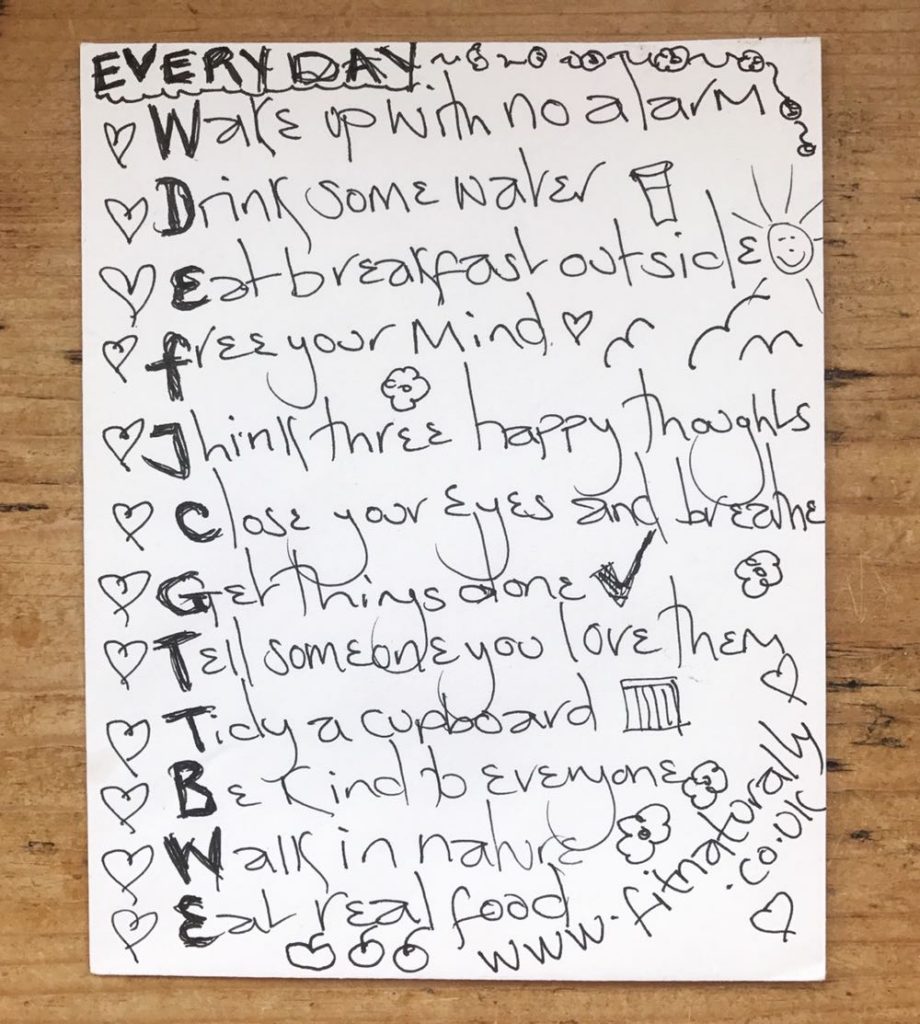 EVERY DAY
Wake up with no alarm
Drink some water
Eat breakfast outside
free your mind
Think three happy thoughts
Close your eyes and breathe
Get things done
Tell someone you love them
Tidy a cupboard
Be kind to everyone
Walk in nature
Eat real food
www.fitnaturally
.co.uk